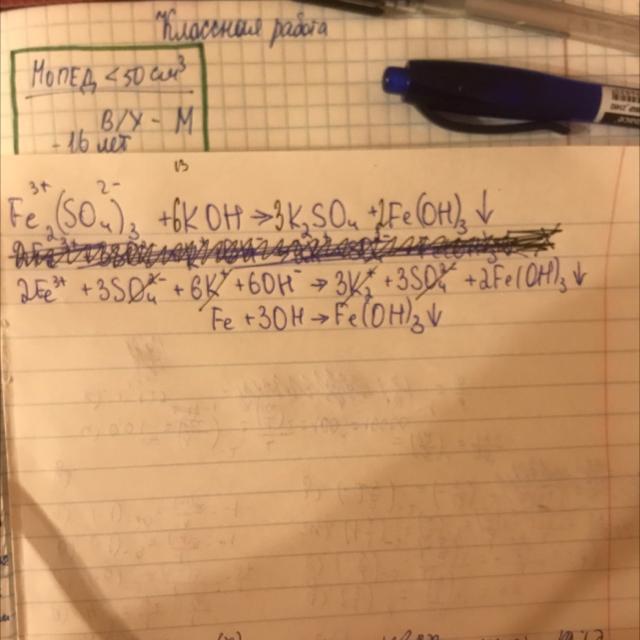 Классная работа
МОПЕД < 50 см³
В/У - М
- 16 лет
13
Fe₂³⁺(SO₄)₃²⁻ + 6KOH → 3K₂SO₄ + 2Fe(OH)₃↓
2Fe³⁺ + 3SO₄²⁻ + 6K⁺ + 6OH⁻ → 3K₂⁺ + 3SO₄²⁻ + 2Fe(OH)₃↓
Fe + 3OH → Fe(OH)₃↓